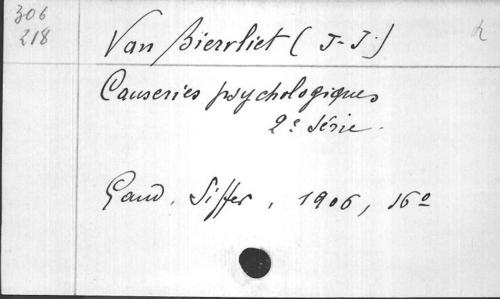 306
218
Van Biervliet (J-J.)
h
Causeries psychologiques
2e série.
Gand, Siffer, 1906, 16o